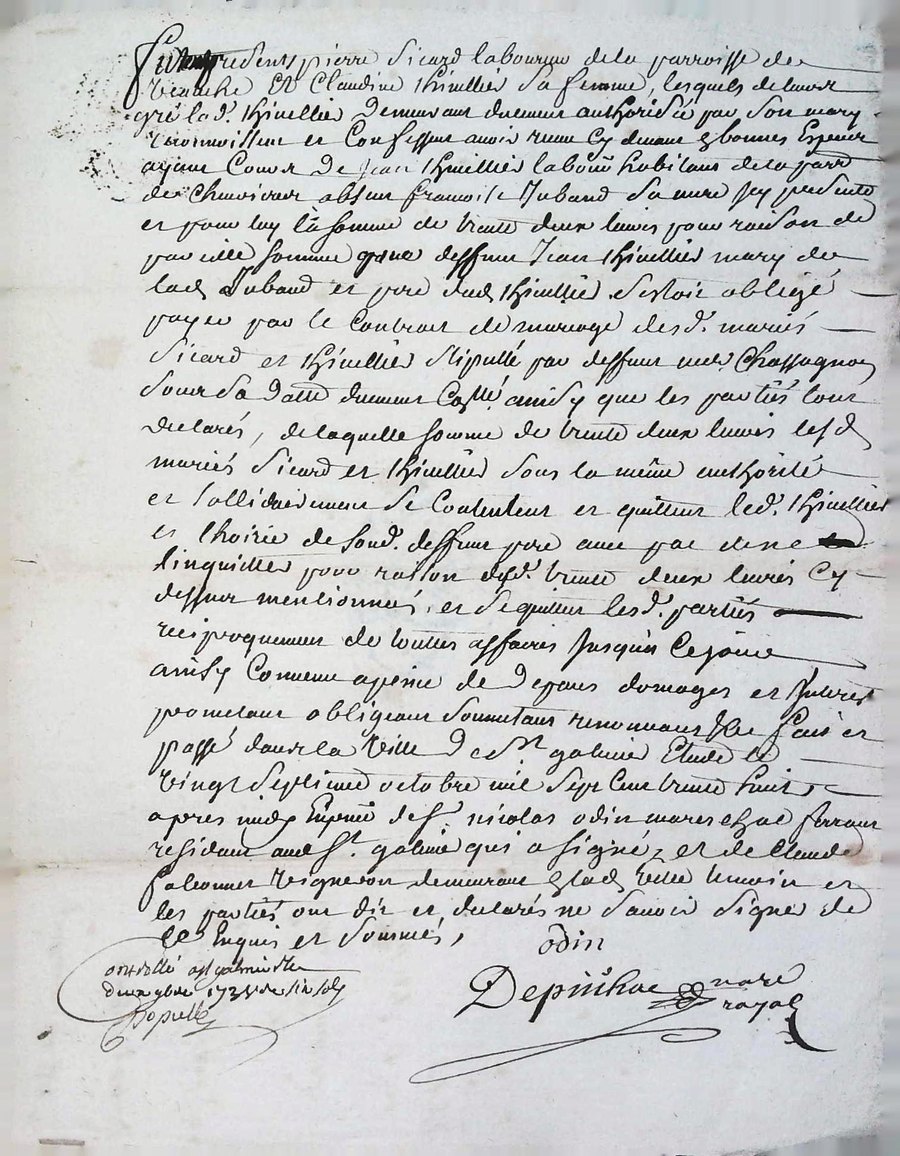 furent presents pierre Sicard laboureur de la parroisse de
Veauche Et Claudine thiellier Sa femme, lesquels de leur
gré lad. thiellier demeurant duement authorisée par son mary
reconnoissent et Confessent avoir receu Cy devant Es bonnes Especes
ayant Cours De Jean thiellier laboure habitant de la parr
de absent francoise Jubaud Sa mere Icy presente
et pour luy la somme de trente deux livres pour raison de
pareille somme que deffunt Jean thiellier mary de
lad Jubaud et pere dud thiellier Sestoit obligé
payer par le Contrat de mariage desd. mariés
Sicard et thiellier Stipullé par deffunt me Chassagnon
Sous Sa Datte duement Collé ainsy que les partiés lont
declarés, de laquelle somme de trente deux livres lesd
mariés Sicard et thiellier Sous la même authorité
et sollidairement Se Contentent et quittent led. thiellier
et lhoirie de Sond. deffunt pere avec pac de ne
linquietter pour raison desd. trente deux livres Cy
dessus mentionneés, et Se quittent lesd. partiés
reciproquement de touttes affaires Jusqua Ce jour
ainsy Convenu a peine de Depans domages et Interest
prometant obligeant Soumettant renonceant &c fait et
passé dans la Ville De St galmier Etude le
Vingt Septieme octobre mil Sept Cent trente huit
apres midy En presence de Sr. nicolas odin mareschal ferrant
residant aud St. galmier qui a signé, et de Claude
falconnet Vigneron demeurant Es lad Ville temoin et
les partiés ont dit et declarés ne Savoir Signer de
Ce Enquis et Sommés,
odin
Depinhac nore
royal
controllé a St galmier le
deux 9bre 1738 Six sols